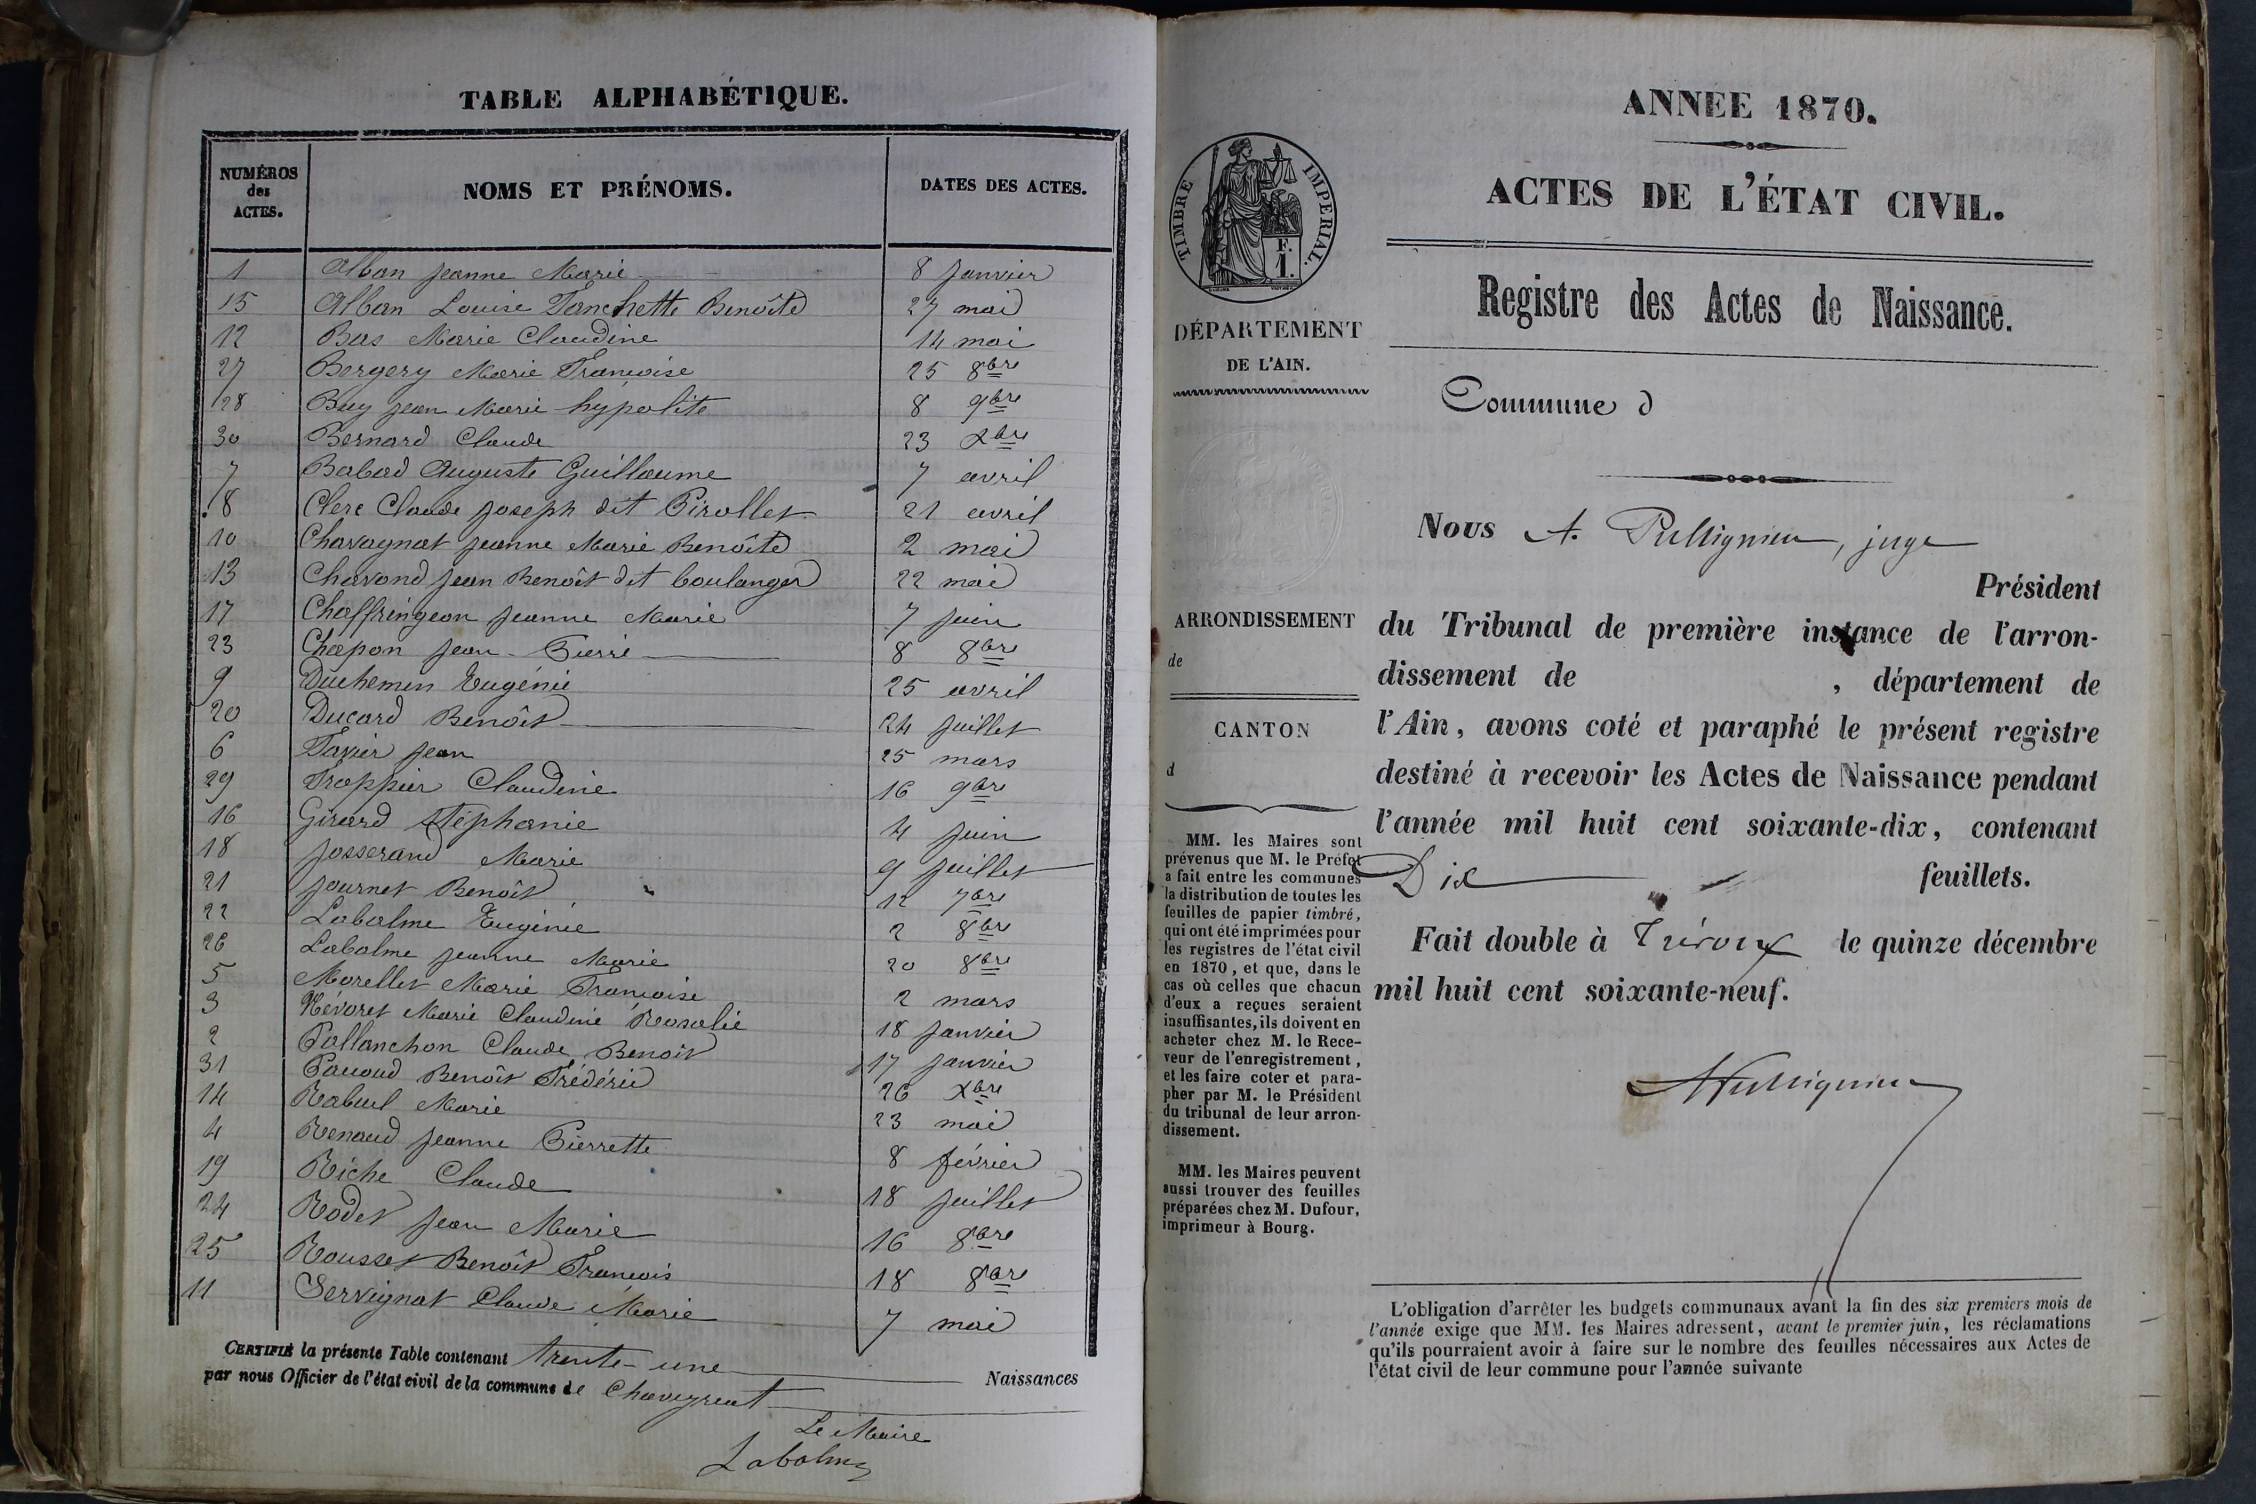 TABLE ALPHABÉTIQUE.
NUMÉROS des ACTES. NOMS ET PRÉNOMS. DATES DES ACTES.
1 Alban Jeanne Marie 8 Janvier
15 Alban Louise Fanchette Benoîte 27 mai
12 Bas Marie Claudine 14 mai
27 Bergery Marie Françoise 25 8bre
28 Buy Jean Marie hypolite 8 9bre
30 Bernard Claude 23 Xbre
7 Babad Auguste Guillaume 7 avril
8 Clerc Claude Joseph dit Pirollet 21 avril
10 Chavagnat Jeanne Marie Benoîte 2 mai
13 Chavond Jean Benoît dit boulanger 22 mai
17 Chaffringeon Jeanne Marie 7 Juin
23 Chapon Jean-Pierre 8 8bre
9 Duchemin Eugénie 25 avril
20 Ducard Benoît 24 Juillet
6 Favier Jean 25 mars
29 Frappier Claudine 16 9bre
16 Girard Stéphanie 4 Juin
18 Josserand Marie 9 Juillet
21 Journet Benoît 12 7bre
22 Labalme Eugénie 2 8bre
26 Labalme Jeanne Marie 20 8bre
5 Morellet Marie Françoise 2 mars
3 Névoret Marie Claudine Rosalie 18 Janvier
2 Pallanchon Claude Benoît 17 Janvier
31 Panoud Benoît Frédéric 26 Xbre
14 Rabuel Marie 23 mai
4 Renaud Jeanne Pierrette 8 février
19 Riche Claude 18 Juillet
24 Rodet Jean Marie 16 8bre
25 Rousset Benoît François 18 8bre
11 Servignat Claude Marie 7 mai
CERTIFIÉ la présente Table contenant trente-une Naissances
par nous Officier de l'état civil de la commune de Chaveyriat
Le Maire
Labalme
ANNÉE 1870.
ACTES DE L'ÉTAT CIVIL.
Registre des Actes de Naissance.
TIMBRE IMPERIAL.
F.
1.
DÉPARTEMENT
DE L'AIN.
ARRONDISSEMENT
de
CANTON
d
MM. les Maires sont
prévenus que M. le Préfet
a fait entre les communes
la distribution de toutes les
feuilles de papier timbré,
qui ont été imprimées pour
les registres de l'état civil
en 1870, et que, dans le
cas où celles que chacun
d'eux a reçues seraient
insuffisantes, ils doivent en
acheter chez M. le Rece-
veur de l'enregistrement,
et les faire coter et para-
pher par M. le Président
du tribunal de leur arron-
dissement.
MM. les Maires peuvent
aussi trouver des feuilles
préparées chez M. Dufour,
imprimeur à Bourg.
Commune d
Nous A. Pullignieu, juge
Président
du Tribunal de première instance de l'arron-
dissement de , département de
l'Ain, avons coté et paraphé le présent registre
destiné à recevoir les Actes de Naissance pendant
l'année mil huit cent soixante-dix, contenant
Dix feuillets.
Fait double à Trévoux le quinze décembre
mil huit cent soixante-neuf.
APullignieu
L'obligation d'arrêter les budgets communaux avant la fin des six premiers mois de
l'année exige que MM. les Maires adressent, avant le premier juin, les réclamations
qu'ils pourraient avoir à faire sur le nombre des feuilles nécessaires aux Actes de
l'état civil de leur commune pour l'année suivante